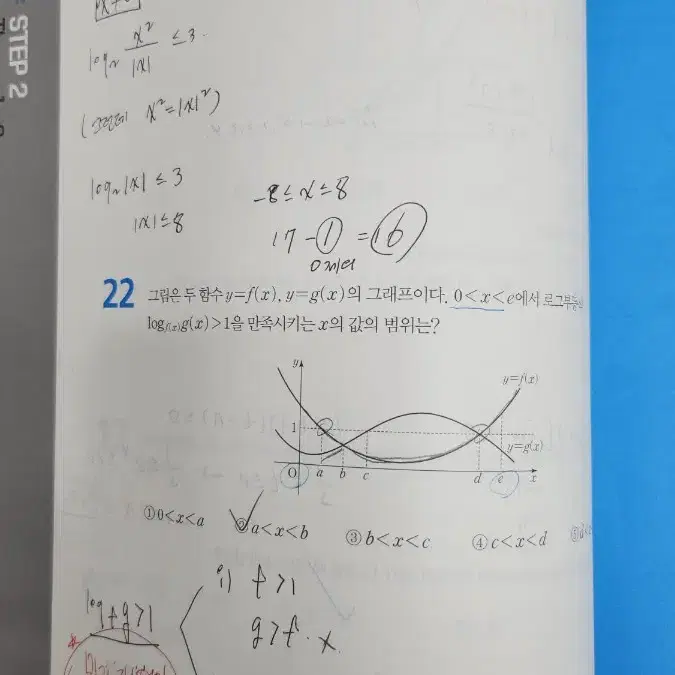 STEP 2
log₂ x²/|x| ≤ 3.
(그런데 x²=|x|²)
log₂|x| ≤ 3
|x| ≤ 8
-8 ≤ x ≤ 8
17 - 1 = 16
0 제외
22 그림은 두 함수 y=f(x), y=g(x)의 그래프이다. 0<x<e에서 로그부등식
log_{f(x)}g(x)>1을 만족시키는 x의 값의 범위는?
y
y=f(x)
1
y=g(x)
O a b c d e x
①0<x<a ②a<x<b ③b<x<c ④c<x<d
i) f>1
g>f. x
log_f g>1